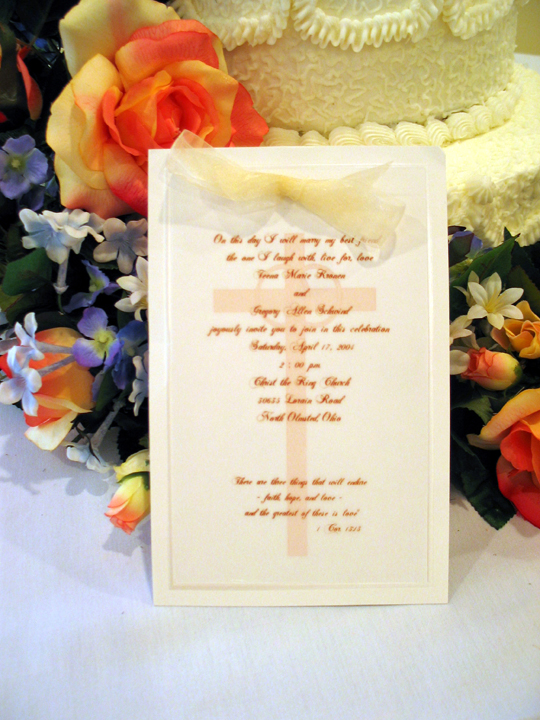 On this day I will marry my best
the one I laugh with, live for, love
Marie
and
Gregory Allen Schwind
joyously invite you to join in this celebration
Saturday, April 17, 2004
2:00 pm
Christ the King Church
30635 Lorain Road
North Olmsted, Ohio
There are three things that will endure
- faith, hope, and love -
and the greatest of these is love
1 Cor. 13:13